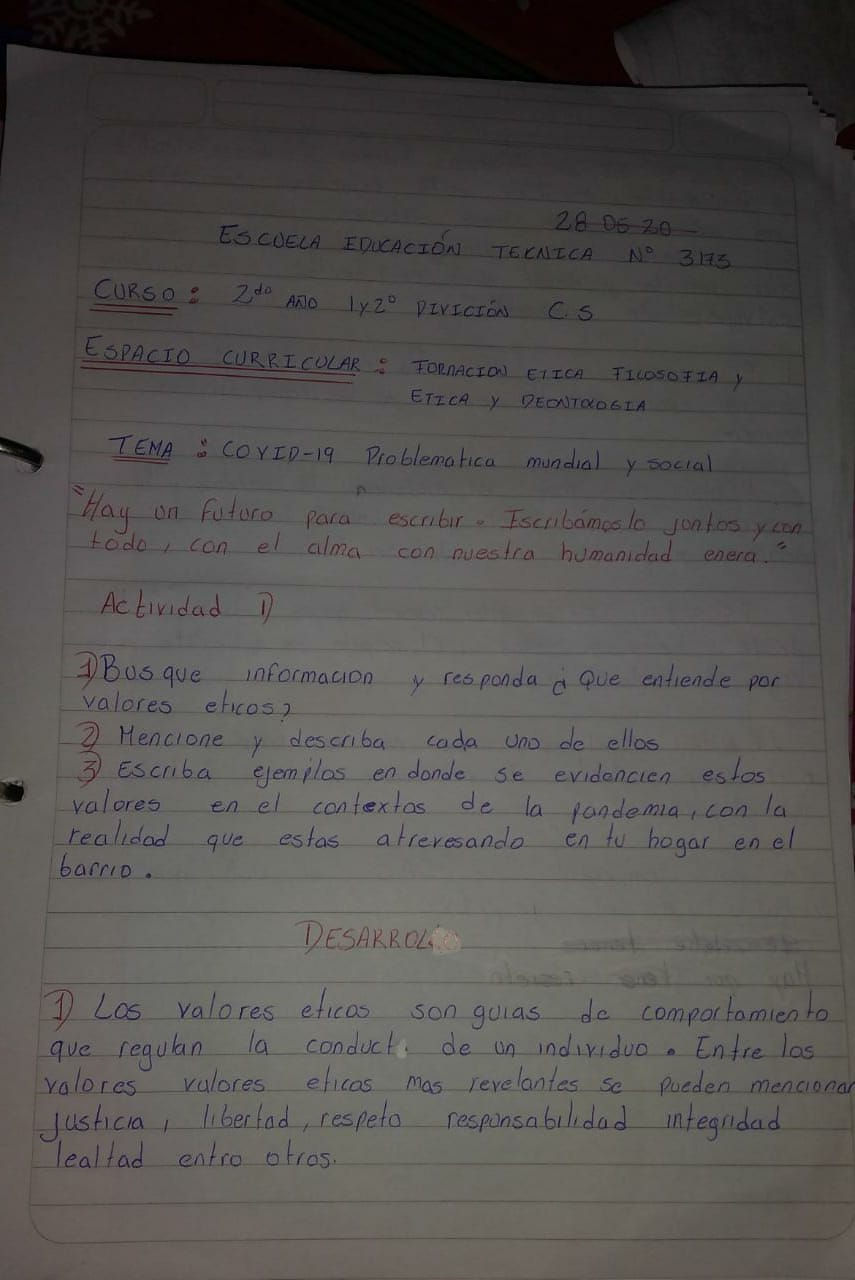 28 06 20
ESCUELA EDUCACIÓN TECNICA N° 3173
CURSO: 2do AÑO 1 y 2° DIVICIÓN C.S
ESPACIO CURRICULAR: FORMACION ETICA FILOSOFIA y
ETICA y DEONTOLOGIA
TEMA: COVID-19 Problematica mundial y social
"Hay un futuro para escribir. Iscribámoslo juntos y con
todo, con el alma con nuestra humanidad enera."
Actividad 1)
1) Busque informacion y responda ¿Que entiende por
valores eticos?
2) Mencione y describa cada uno de ellos
3) Escriba ejemplos en donde se evidencien estos
valores en el contextos de la pandemia, con la
realidad que estas atrevesando en tu hogar en el
barrio.
DESARROLLO
1) Los valores eticos son guias de comportamiento
que regulan la conduct de un individuo. Entre los
valores valores eticos mas revelantes se pueden mencionar
justicia, libertad, respeto responsabilidad integridad
lealtad entro otros.